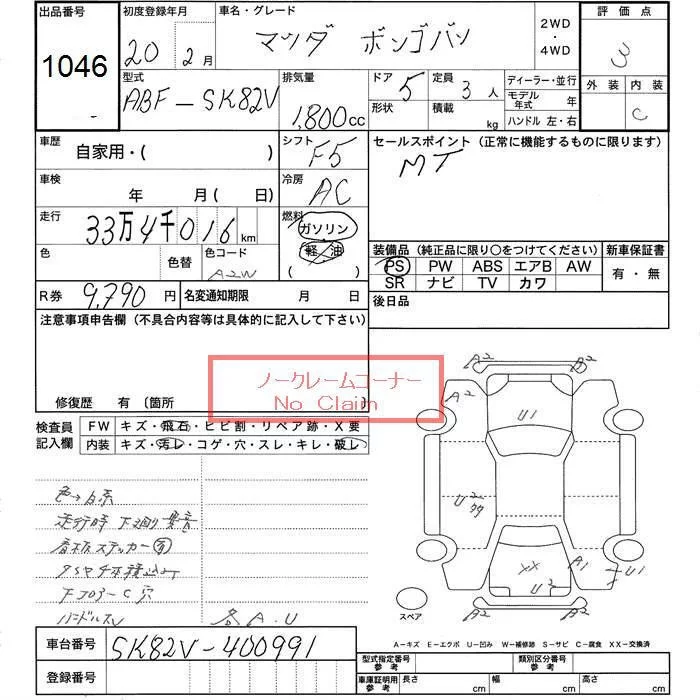 出品番号 初度登録年月 車名・グレード 2WD・4WD 評価点
1046 20年 2月 マツダ ボンゴバン 3
型式 排気量 ドア 5 定員 3人 ディーラー・並行 外装 内装
ABF-SK82V 1,800cc 形状 積載 kg モデル年式 年 C
ハンドル 左・右
車歴 自家用・( ) シフト F5 セールスポイント (正常に機能するものに限ります)
MT
車検 年 月( 日) 冷房 AC
走行 33万4千016km 燃料 ガソリン
軽油
( )
色 色替 色コード A2W
装備品 (純正品に限り○をつけてください) 新車保証書
PS PW ABS エアB AW 有・無
SR ナビ TV カワ
R券 9,790円 名変通知期限 月 日 後日品
注意事項申告欄 (不具合内容等は具体的に記入して下さい)
ノークレームコーナー
No Claim
修復歴 有 〔箇所 〕
検査員記入欄 FW キズ・飛石・ヒビ割・リペア跡・X要
内装 キズ・汚レ・コゲ・穴・スレ・キレ・破レ
A2 A2
A2
U1
U2
XX A1 U1
U2
A2 A2
走行時 下廻り異音
看板ステッカー
ハンドルスレ 各A.U
スペア
A-キズ E-エクボ U-凹み W-補修跡 S-サビ C-腐食 XX-交換済
車台番号 SK82V-400991
登録番号
型式指定番号 参考 類別区分番号 参考
車庫証明用 参考 長さ cm 幅 cm 高さ cm